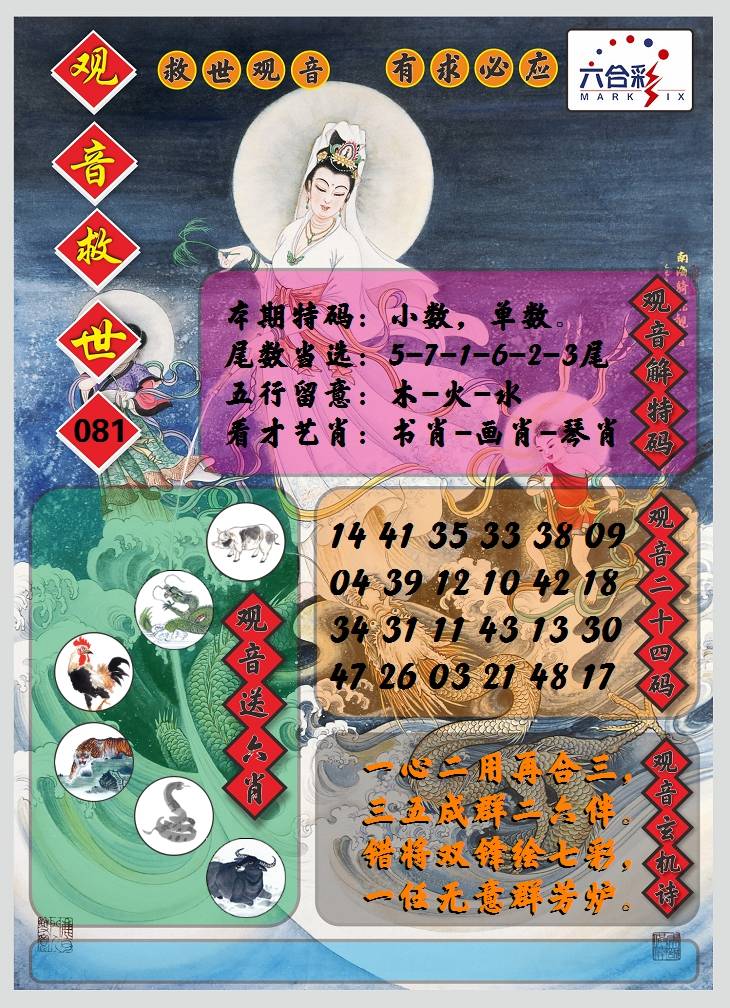 观音救世
081
救世观音 有求必应
六合彩
MARK SIX
本期特码：小数，单数。
尾数当选：5-7-1-6-2-3尾
五行留意：木-火-水
看才艺肖：书肖-画肖-琴肖
观音解特码
14 41 35 33 38 09
04 39 12 10 42 18
34 31 11 43 13 30
47 26 03 21 48 17
观音二十四码
观音送六肖
一心二用再合三，
三五成群二六伴。
错将双锋绘七彩，
一任无意群芳炉。
观音玄机诗